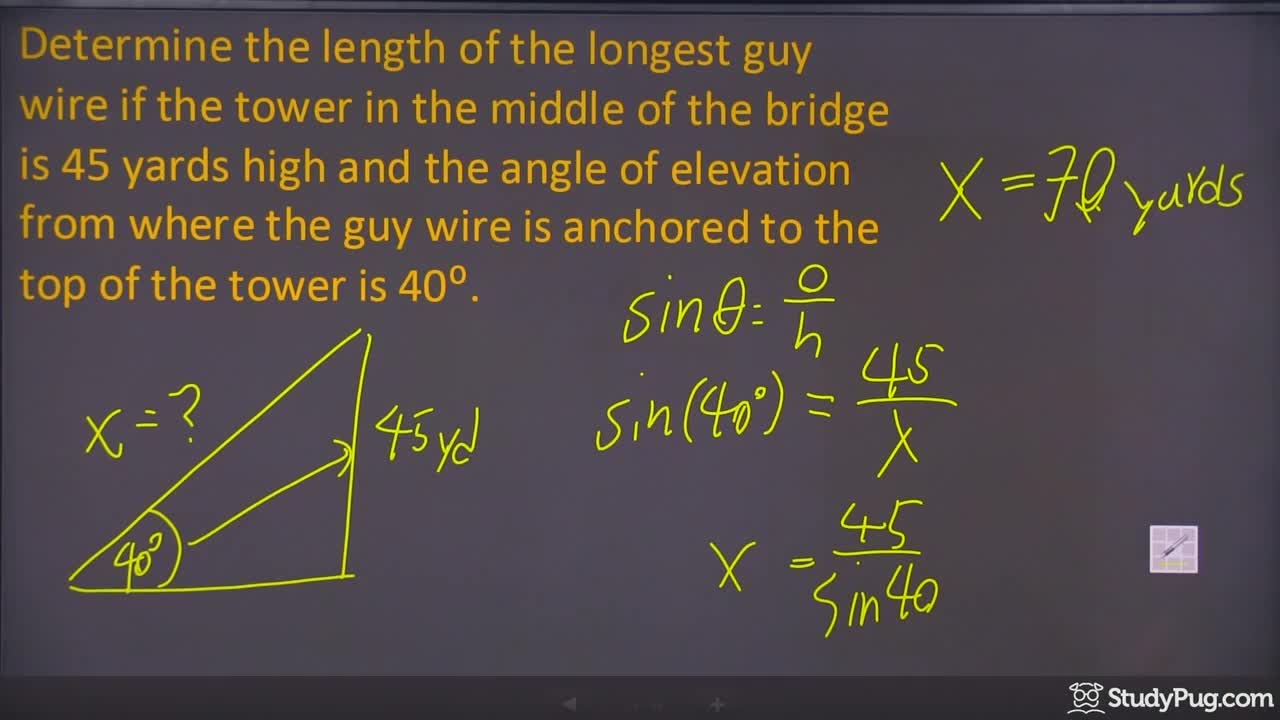 Determine the length of the longest guy
wire if the tower in the middle of the bridge
is 45 yards high and the angle of elevation
from where the guy wire is anchored to the
top of the tower is 40º.
x = 70 yards
sinθ = o/h
sin(40°) = 45/x
x = 45/sin40
x = ?
45yd
40°
StudyPug.com